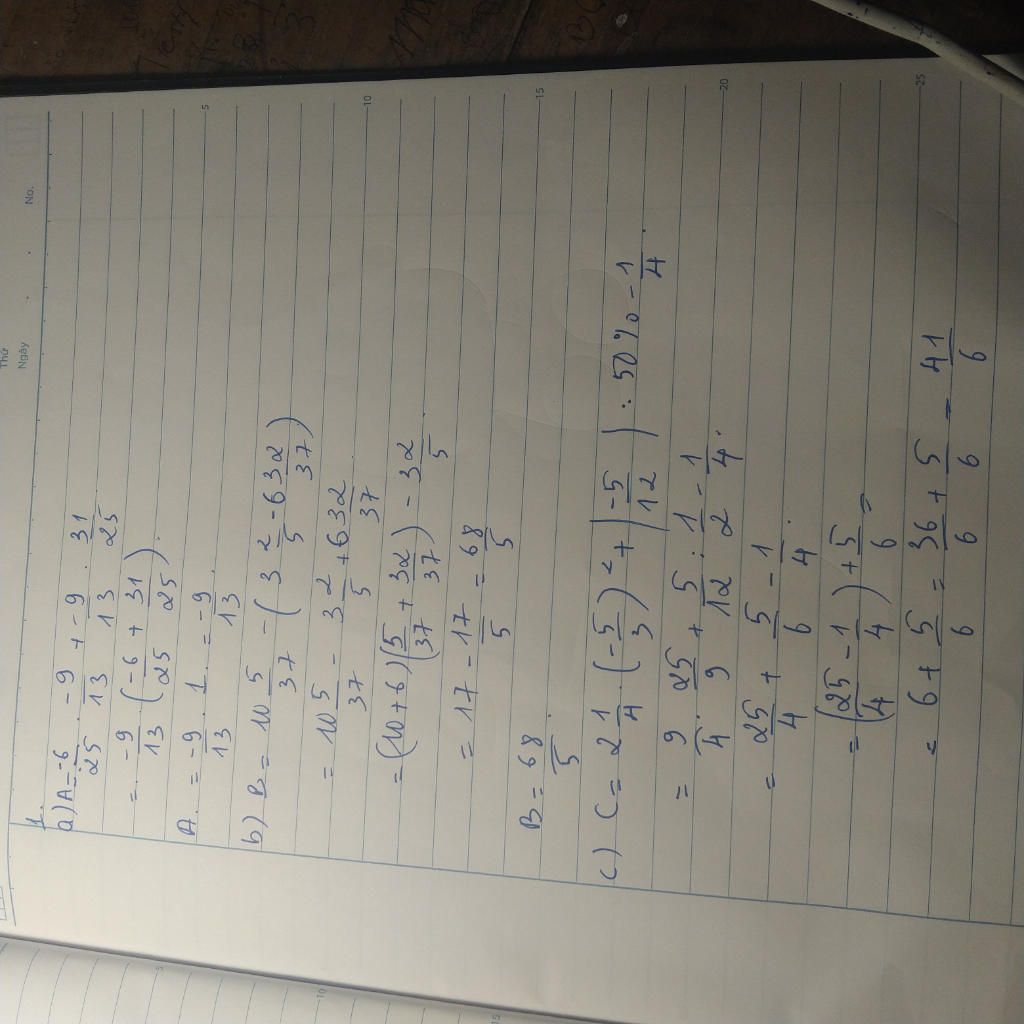 Thứ
Ngày
No.
1.
a) A = -6/25 . -9/13 + -9/13 . 31/25
= -9/13 . (-6/25 + 31/25).
A = -9/13 . 1 = -9/13.
b) B = 10 5/37 - (3 2/5 - 6 32/37)
= 10 5/37 - 3 2/5 + 6 32/37
= (10+6)(5/37 + 32/37) - 3 2/5.
= 17 - 17/5 = 68/5
B = 68/5.
c) C = 2 1/4 . (-5/3)² + |-5/12| : 50% - 1/4.
= 9/4 . 25/9 + 5/12 : 1/2 - 1/4.
= 25/4 + 5/6 - 1/4.
= (25/4 - 1/4) + 5/6 =
= 6 + 5/6 = 36/6 + 5/6 = 41/6
5
10
15
20
25
5
10
15